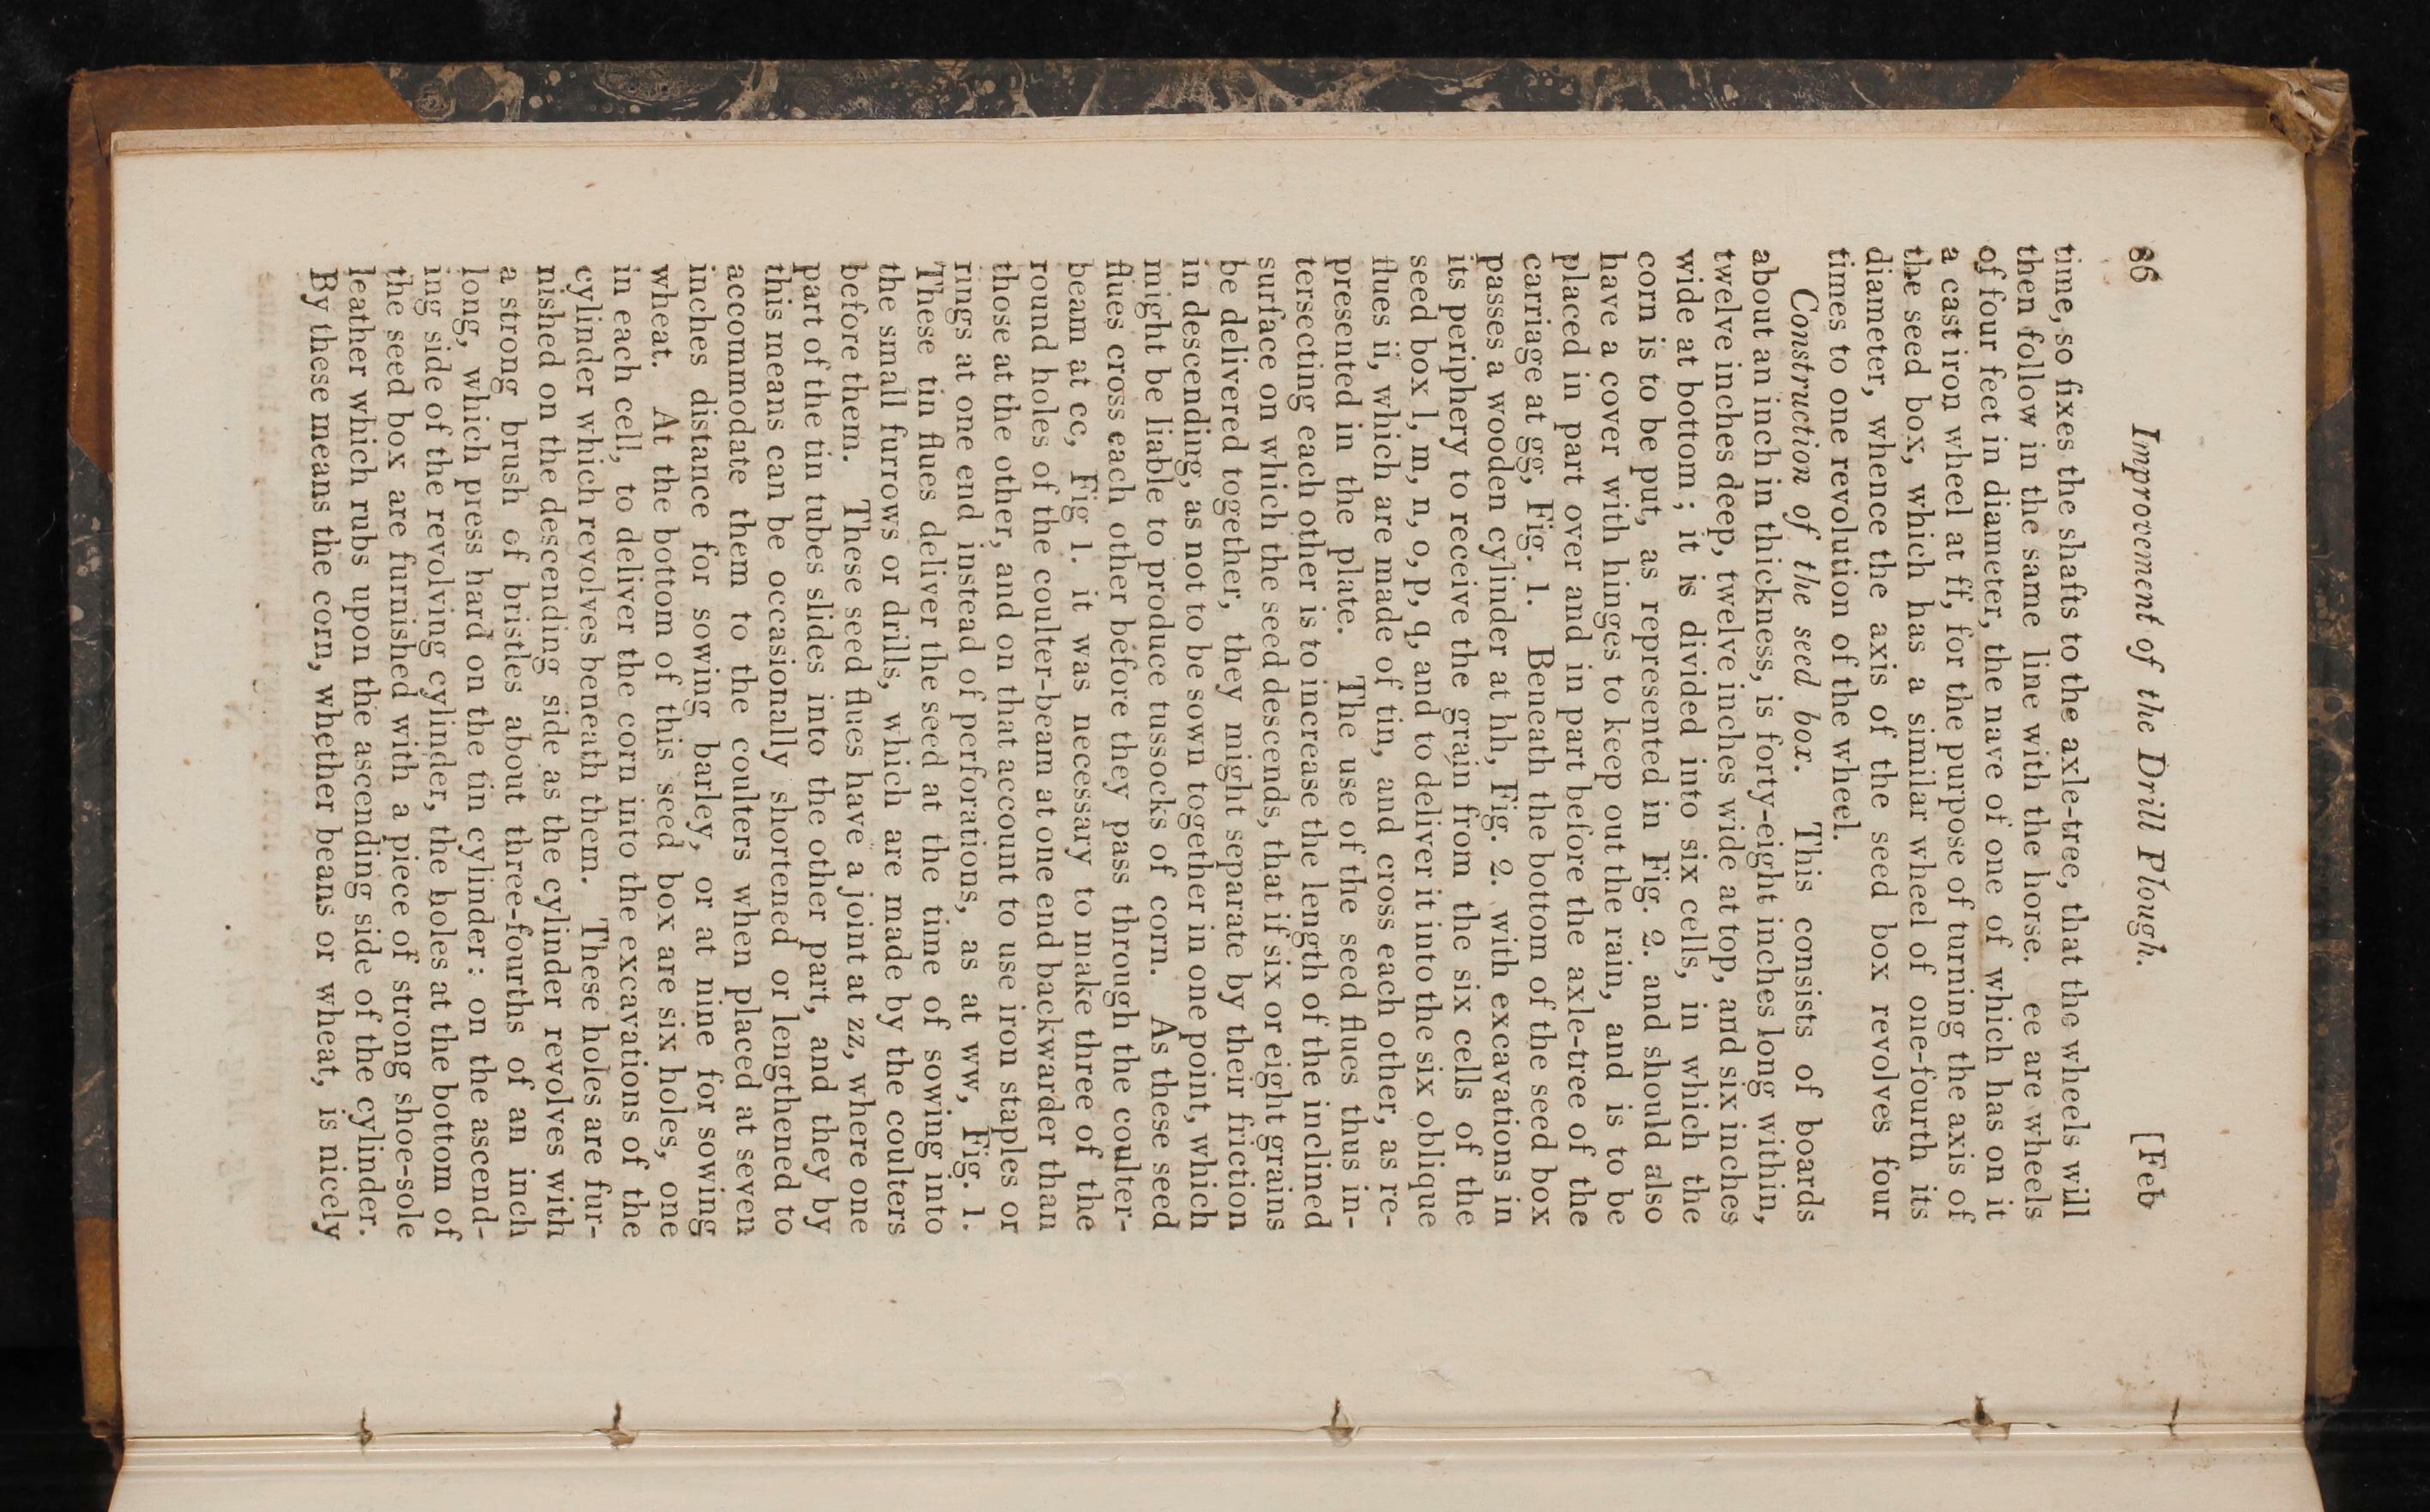 86 Improvement of the Drill Plough. [Feb
time, so fixes the shafts to the axle-tree, that the wheels will
then follow in the same line with the horse. ee are wheels
of four feet in diameter, the nave of one of which has on it
a cast iron wheel at ff, for the purpose of turning the axis of
the seed box, which has a similar wheel of one-fourth its
diameter, whence the axis of the seed box revolves four
times to one revolution of the wheel.
Construction of the seed box. This consists of boards
about an inch in thickness, is forty-eight inches long within,
twelve inches deep, twelve inches wide at top, and six inches
wide at bottom; it is divided into six cells, in which the
corn is to be put, as represented in Fig. 2. and should also
have a cover with hinges to keep out the rain, and is to be
placed in part over and in part before the axle-tree of the
carriage at gg, Fig. 1. Beneath the bottom of the seed box
passes a wooden cylinder at hh, Fig. 2. with excavations in
its periphery to receive the grain from the six cells of the
seed box l, m, n, o, p, q, and to deliver it into the six oblique
flues ii, which are made of tin, and cross each other, as re-
presented in the plate. The use of the seed flues thus in-
tersecting each other is to increase the length of the inclined
surface on which the seed descends, that if six or eight grains
be delivered together, they might separate by their friction
in descending, as not to be sown together in one point, which
might be liable to produce tussocks of corn. As these seed
flues cross each other before they pass through the coulter-
beam at cc, Fig 1. it was necessary to make three of the
round holes of the coulter-beam at one end backwarder than
those at the other, and on that account to use iron staples or
rings at one end instead of perforations, as at ww, Fig. 1.
These tin flues deliver the seed at the time of sowing into
the small furrows or drills, which are made by the coulters
before them. These seed flues have a joint at zz, where one
part of the tin tubes slides into the other part, and they by
this means can be occasionally shortened or lengthened to
accommodate them to the coulters when placed at seven
inches distance for sowing barley, or at nine for sowing
wheat. At the bottom of this seed box are six holes, one
in each cell, to deliver the corn into the excavations of the
cylinder which revolves beneath them. These holes are fur-
nished on the descending side as the cylinder revolves with
a strong brush of bristles about three-fourths of an inch
long, which press hard on the tin cylinder: on the ascend-
ing side of the revolving cylinder, the holes at the bottom of
the seed box are furnished with a piece of strong shoe-sole
leather which rubs upon the ascending side of the cylinder.
By these means the corn, whether beans or wheat, is nicely